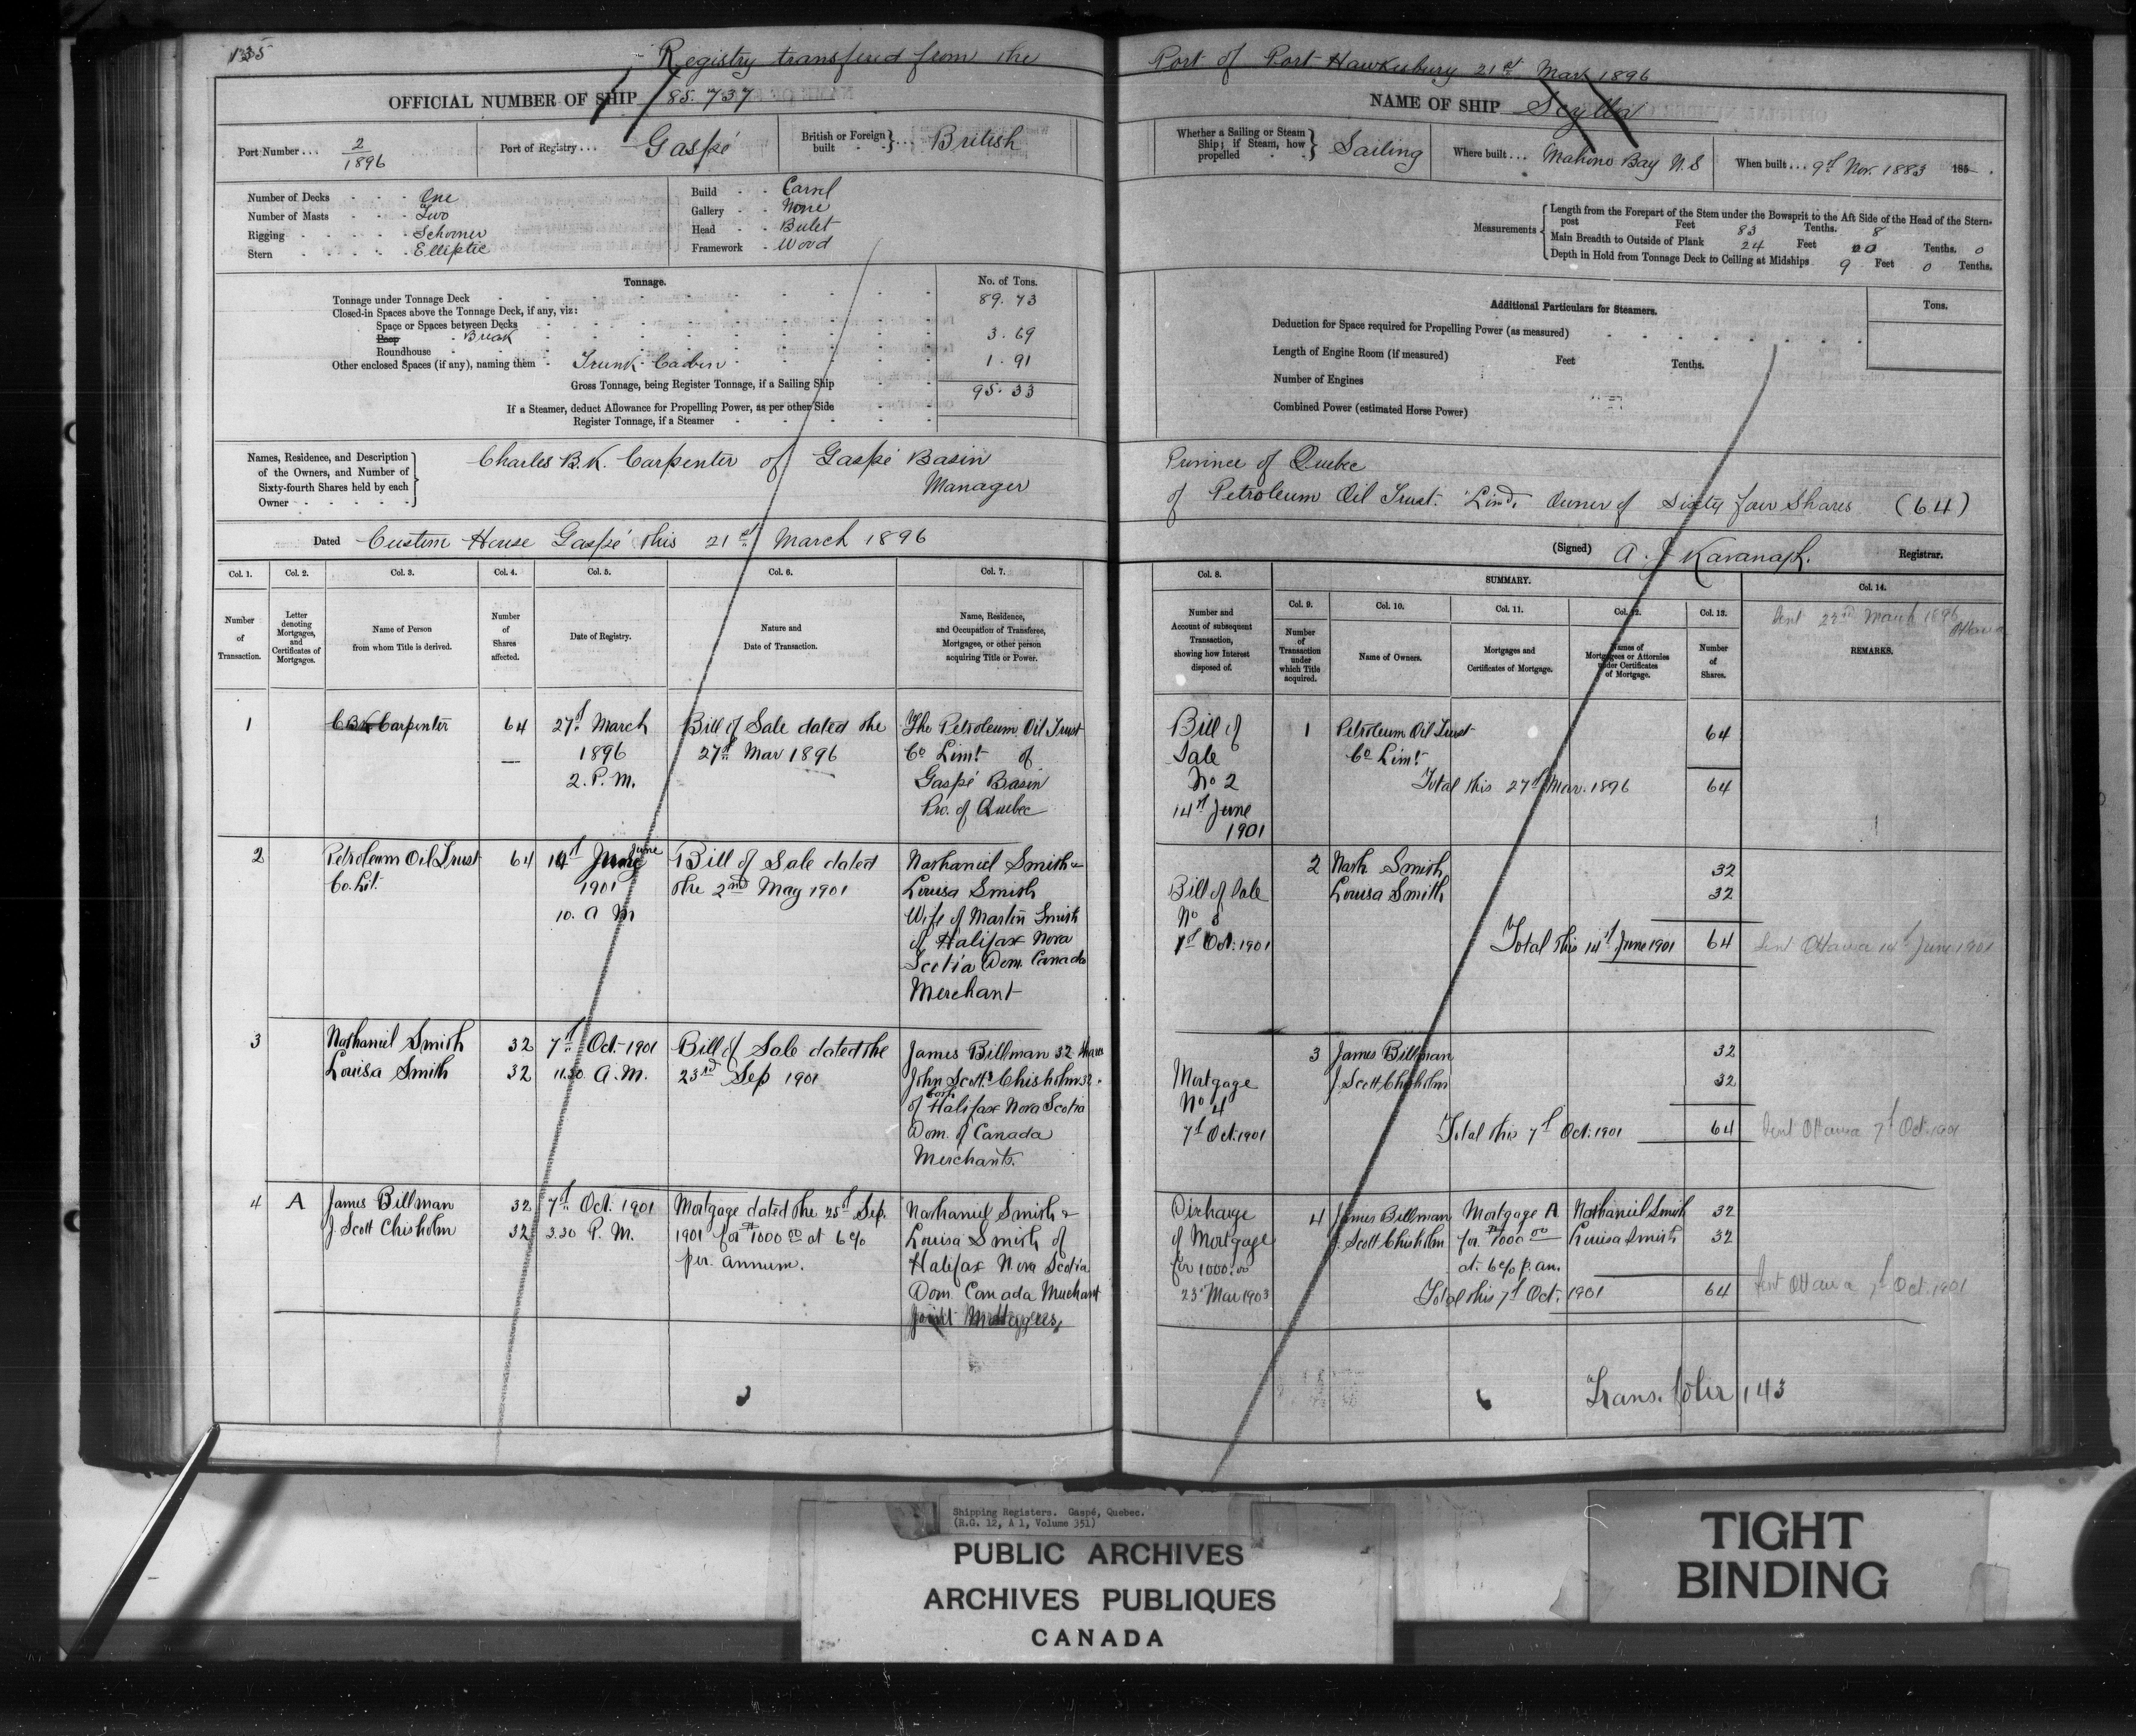 135
Registry transfered from the Port of Port Hawkesbury 21st Mar 1896
OFFICIAL NUMBER OF SHIP 85.737
NAME OF SHIP Scylla
Port Number... 2/1896
Port of Registry... Gaspé
British or Foreign built }... British
Whether a Sailing or Steam Ship; if Steam, how propelled } Sailing
Where built... Mahone Bay N.S
When built... 9th Nov. 1883 185
Number of Decks One
Number of Masts Two
Rigging Schooner
Stern Elliptic
Build Carvel
Gallery None
Head Billet
Framework Wood
Measurements
Length from the Forepart of the Stem under the Bowsprit to the Aft Side of the Head of the Stern-
post Feet 83 Tenths. 8
Main Breadth to Outside of Plank 24 Feet Tenths. 0
Depth in Hold from Tonnage Deck to Ceiling at Midships 9 Feet 0 Tenths.
Tonnage. No. of Tons.
Tonnage under Tonnage Deck 89.73
Closed-in Spaces above the Tonnage Deck, if any, viz:
Space or Spaces between Decks
Poop Break 3.69
Roundhouse
Other enclosed Spaces (if any), naming them Trunk Cabin 1.91
Gross Tonnage, being Register Tonnage, if a Sailing Ship 95.33
If a Steamer, deduct Allowance for Propelling Power, as per other Side
Register Tonnage, if a Steamer
Additional Particulars for Steamers. Tons.
Deduction for Space required for Propelling Power (as measured)
Length of Engine Room (if measured) Feet Tenths.
Number of Engines
Combined Power (estimated Horse Power)
Names, Residence, and Description
of the Owners, and Number of
Sixty-fourth Shares held by each
Owner
Charles B.K. Carpenter of Gaspé Basin Province of Quebec
Manager of Petroleum Oil Trust. Limd. Owner of Sixty four Shares (64)
Dated Custom House Gaspé this 21st March 1896
(Signed) A. J Kavanagh. Registrar.
Col. 1. Col. 2. Col. 3. Col. 4. Col. 5. Col. 6. Col. 7.
Number of Transaction.
Letter denoting Mortgages, and Certificates of Mortgages.
Name of Person from whom Title is derived.
Number of Shares affected.
Date of Registry.
Nature and Date of Transaction.
Name, Residence, and Occupation of Transferee, Mortgagee, or other person acquiring Title or Power.
Col. 8.
Number and Account of subsequent Transaction, showing how Interest disposed of.
SUMMARY.
Col. 9. Col. 10. Col. 11. Col. 12. Col. 13. Col. 14.
Number of Transaction under which Title acquired.
Name of Owners.
Mortgages and Certificates of Mortgage.
Names of Mortgagees or Attornies under Certificates of Mortgage.
Number of Shares.
Sent 23rd March 1896
Ottawa
REMARKS.
1
C B K Carpenter
64
27th March
1896
2. P. M.
Bill of Sale dated the
27th Mar 1896
The Petroleum Oil Trust
Co Limt of
Gaspé Basin
Pro. of Quebec
Bill of
Sale
No 2
14th June
1901
1 Petroleum Oil Trust 64
Co Limt
Total this 27th Mar. 1896 64
2
Petroleum Oil Trust
Co. Lit.
64
14th June
1901
10. A M
Bill of Sale dated
the 2nd May 1901
Nathaniel Smith &
Louisa Smith
Wife of Martin Smith
of Halifax Nova
Scotia Dom. Canada
Merchant
Bill of Sale
No 3
7th Oct. 1901
2 Nath Smith 32
Louisa Smith 32
Total this 14th June 1901 64
Sent Ottawa 14th June 1901
3
Nathaniel Smith 32
Louisa Smith 32
7th Oct. 1901
11.30 A.M.
Bill of Sale dated the
23rd Sep 1901
James Billman 32 shares
John Scott Chisholm 32
both
of Halifax Nova Scotia
Dom. of Canada
Merchants.
Mortgage
No 4
7th Oct. 1901
3 James Billman 32
J. Scott Chisholm 32
Total this 7th Oct. 1901 64
Sent Ottawa 7th Oct. 1901
4 A
James Billman 32
J. Scott Chisholm 32
7th Oct. 1901
3.30 P. M.
Mortgage dated the 25th Sep.
1901 for $1000 00 at 6%
per. annum.
Nathaniel Smith &
Louisa Smith of
Halifax Nova Scotia
Dom. Canada Merchant
Joint Mortgagees,
Discharge
of Mortgage
for 1000.00
23 Mar 1903
4 James Billman Mortgage A Nathaniel Smith 32
J. Scott Chisholm for $1000 00 Louisa Smith 32
at 6% p. an.
Total this 7th Oct. 1901 64
Sent Ottawa 7th Oct. 1901
Trans. folio 143
Shipping Registers. Gaspé, Quebec.
(R.G. 12, A 1, Volume 351)
PUBLIC ARCHIVES
ARCHIVES PUBLIQUES
CANADA
TIGHT
BINDING